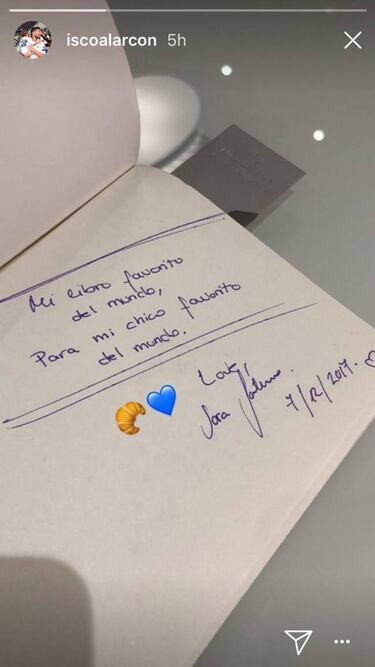 iscoalarcon 5h
Mi libro favorito
del mundo,
Para mi chico favorito
del mundo.
Love,
Sara
7/12/2017.